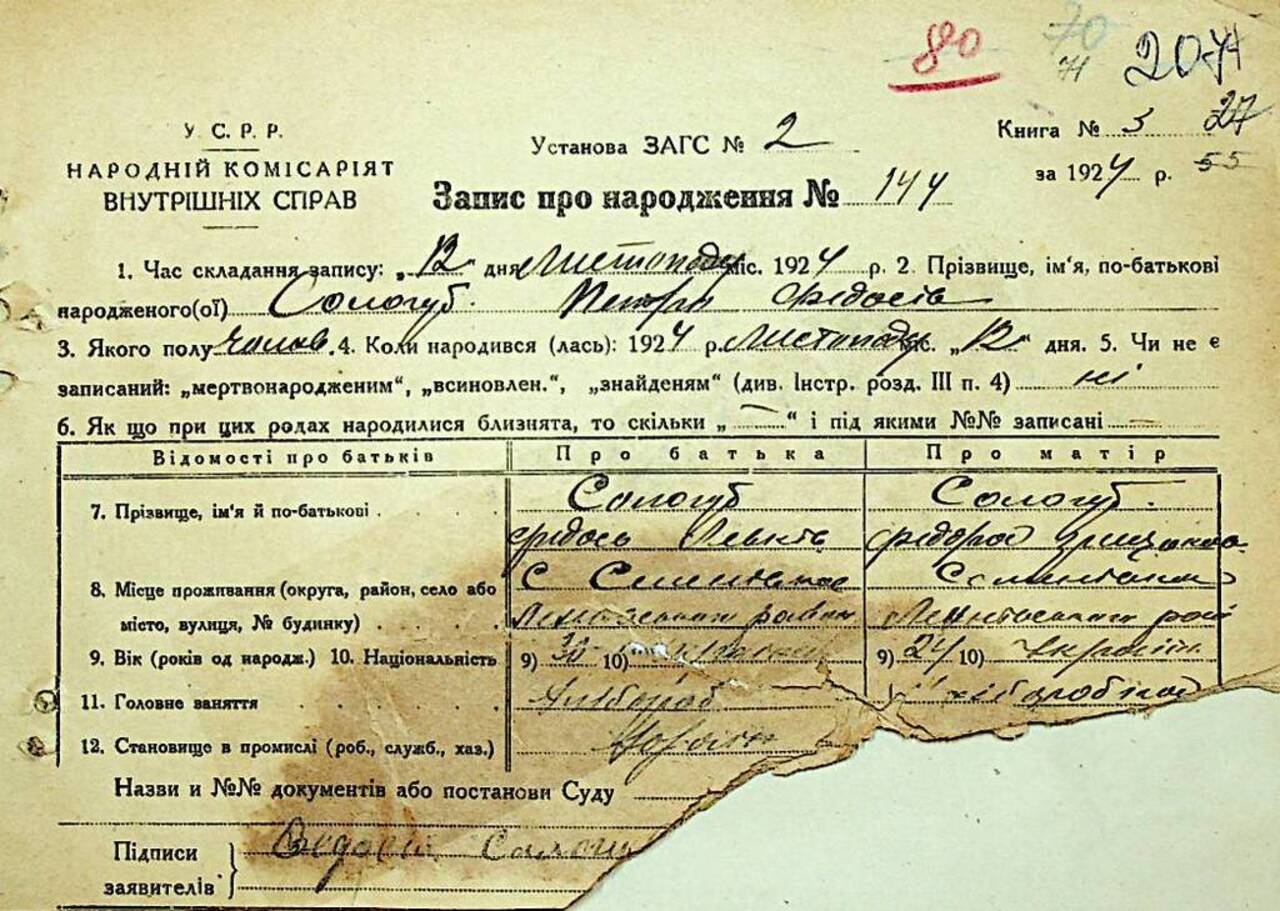 80 70 71 207
У. С. Р. Р.
НАРОДНІЙ КОМІСАРІЯТ
ВНУТРІШНІХ СПРАВ
Установа ЗАГС № 2
Книга № 3 27
за 1924 р. 55
Запис про народження № 144
1. Час складання запису: „12" дня Листопаду міс. 1924 р. 2. Прізвище, ім'я, по-батькові
народженого(ої) Сологуб Петро Федосів
3. Якого полу чолов. 4. Коли народився (лась): 1924 р. Листопаду міс. „12" дня. 5. Чи не є
записаний: „мертвонародженим", „всиновлен.", „знайденям" (див. Інстр. розд. III п. 4) ні
6. Як що при цих родах народилися близнята, то скільки „—" і під якими №№ записані —
Відомості про батьків Про батька Про матір
7. Прізвище, ім'я й по-батькові Сологуб Сологуб
8. Місце проживання (округа, район, село або
місто, вулиця, № будинку)
9. Вік (років од народж.) 10. Національність 9) 30 10) 9) 24 10)
11. Головне заняття Хлібороб
12. Становище в промислі (роб., служб., хаз.)
Назви и №№ документів або постанови Суду
Підписи
заявителів